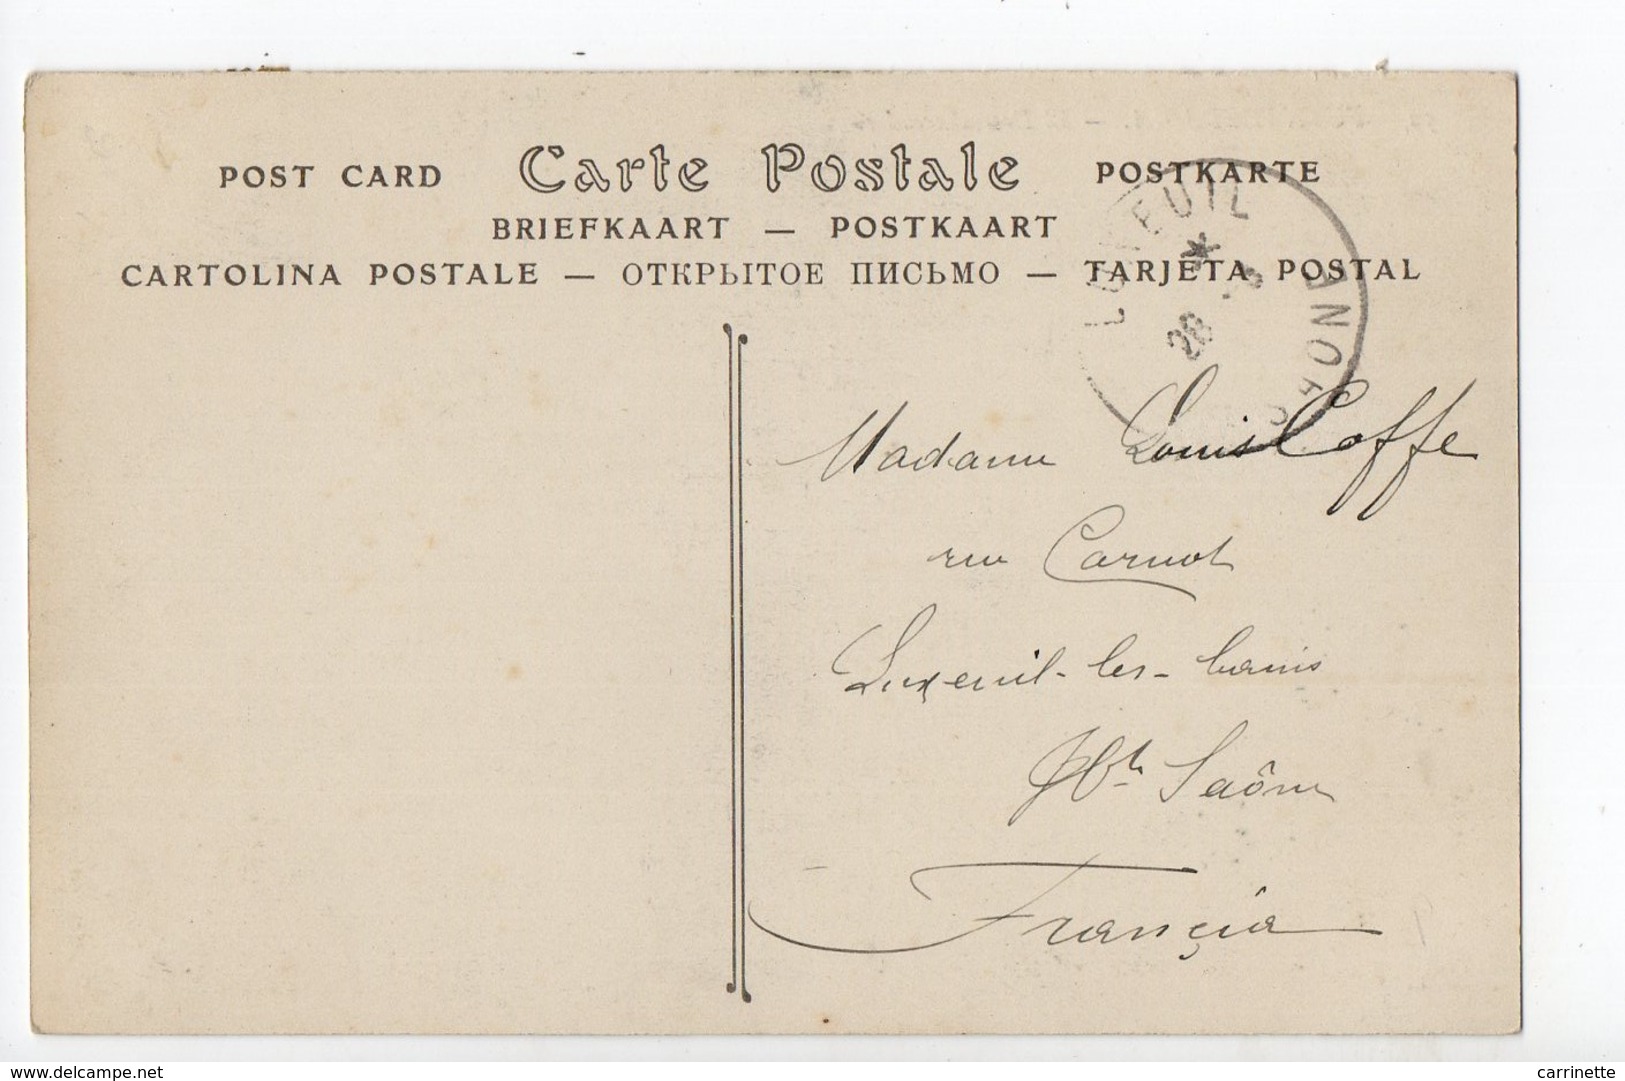 POST CARD Carte Postale POSTKARTE
BRIEFKAART — POSTKAART
CARTOLINA POSTALE — ОТКРЫТОЕ ПИСЬМО — TARJETA POSTAL
LUXEUIL
*
28
SAONE
Madame Louis Coffe
rue Carnot
Luxeuil-les-bains
Hte Saône
Françia
www.delcampe.net
carrinette